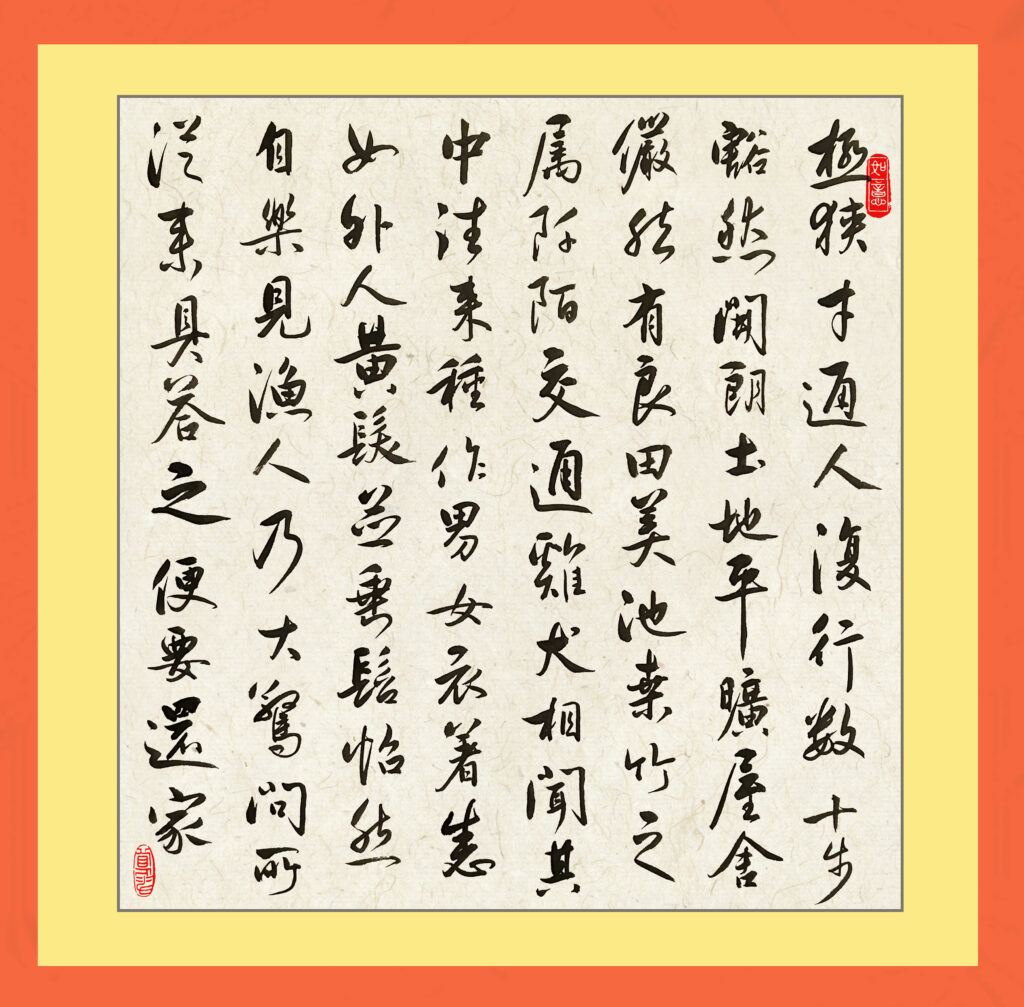 如意
極狹才通人復行数十步
豁然開朗土地平曠屋舍
儼然有良田美池桑竹之
属阡陌交通雞犬相聞其
中往来種作男女衣著悉
如外人黄髮並垂髫怡然
自樂見漁人乃大驚問所
從来具荅之便要還家